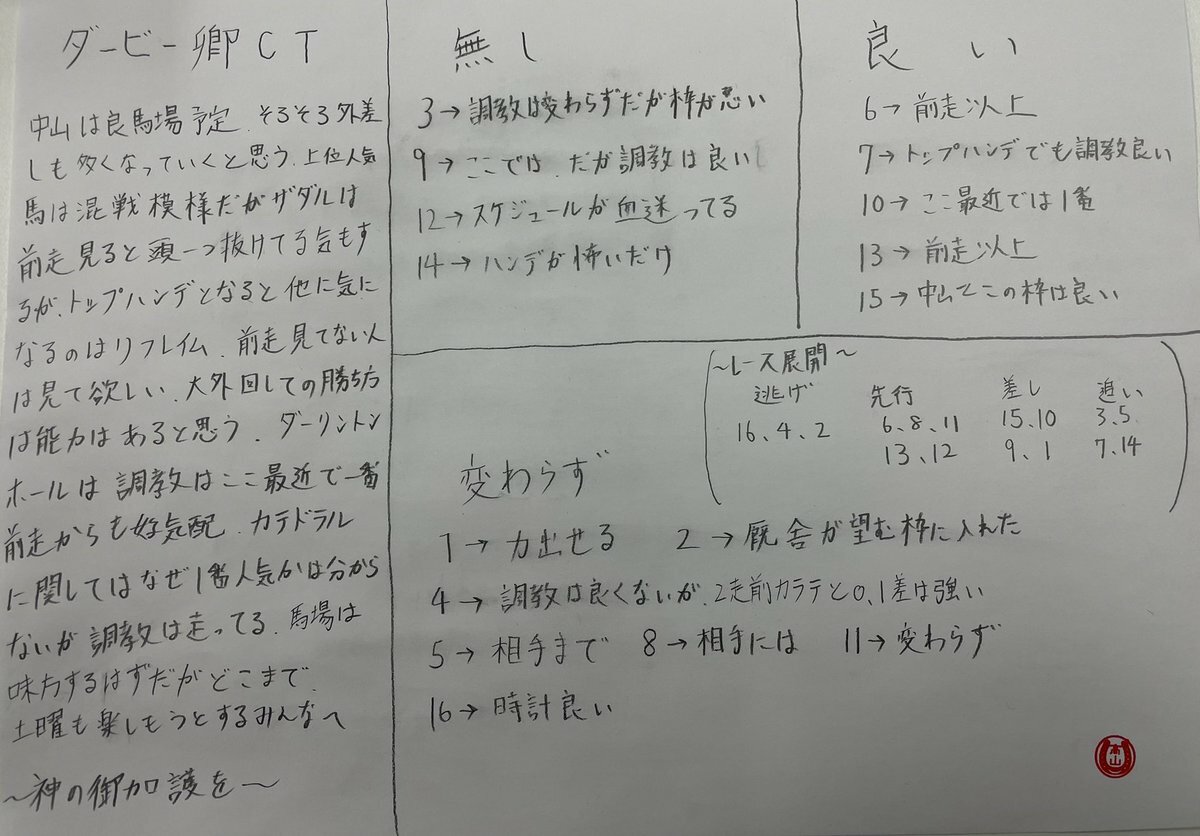 ダービー卿CT
中山は良馬場予定.そろそろ外差
しも多くなっていくと思う.上位人気
馬は混戦模様だがザダルは
前走見ると頭一つ抜けてる気もす
るが、トップハンデとなると他に気に
なるのはリフレイム.前走見てない人
は見て欲しい.大外回しての勝ち方
は能力はあると思う.ダーリントン
ホールは調教はここ最近で一番
前走からも好気配.カテドラル
に関してはなぜ1番人気かは分から
ないが調教は走ってる.馬場は
味方するはずだがどこまで.
土曜も楽しもうとするみんなへ
～神の御加護を～
無し
3→調教は変わらずだが枠が悪い
9→ここでは.だが調教は良い
12→スケジュールが血迷ってる
14→ハンデが怖いだけ
良い
6→前走以上
7→トップハンデでも調教良い
10→ここ最近では1番
13→前走以上
15→中山でこの枠は良い
～レース展開～
逃げ 先行 差し 追い
16、4、2 6、8、11 15、10 3、5、
13、12 9、1 7、14
変わらず
1→力出せる 2→厩舎が望む枠に入れた
4→調教は良くないが、2走前カラテと0,1差は強い
5→相手まで 8→相手には 11→変わらず
16→時計良い